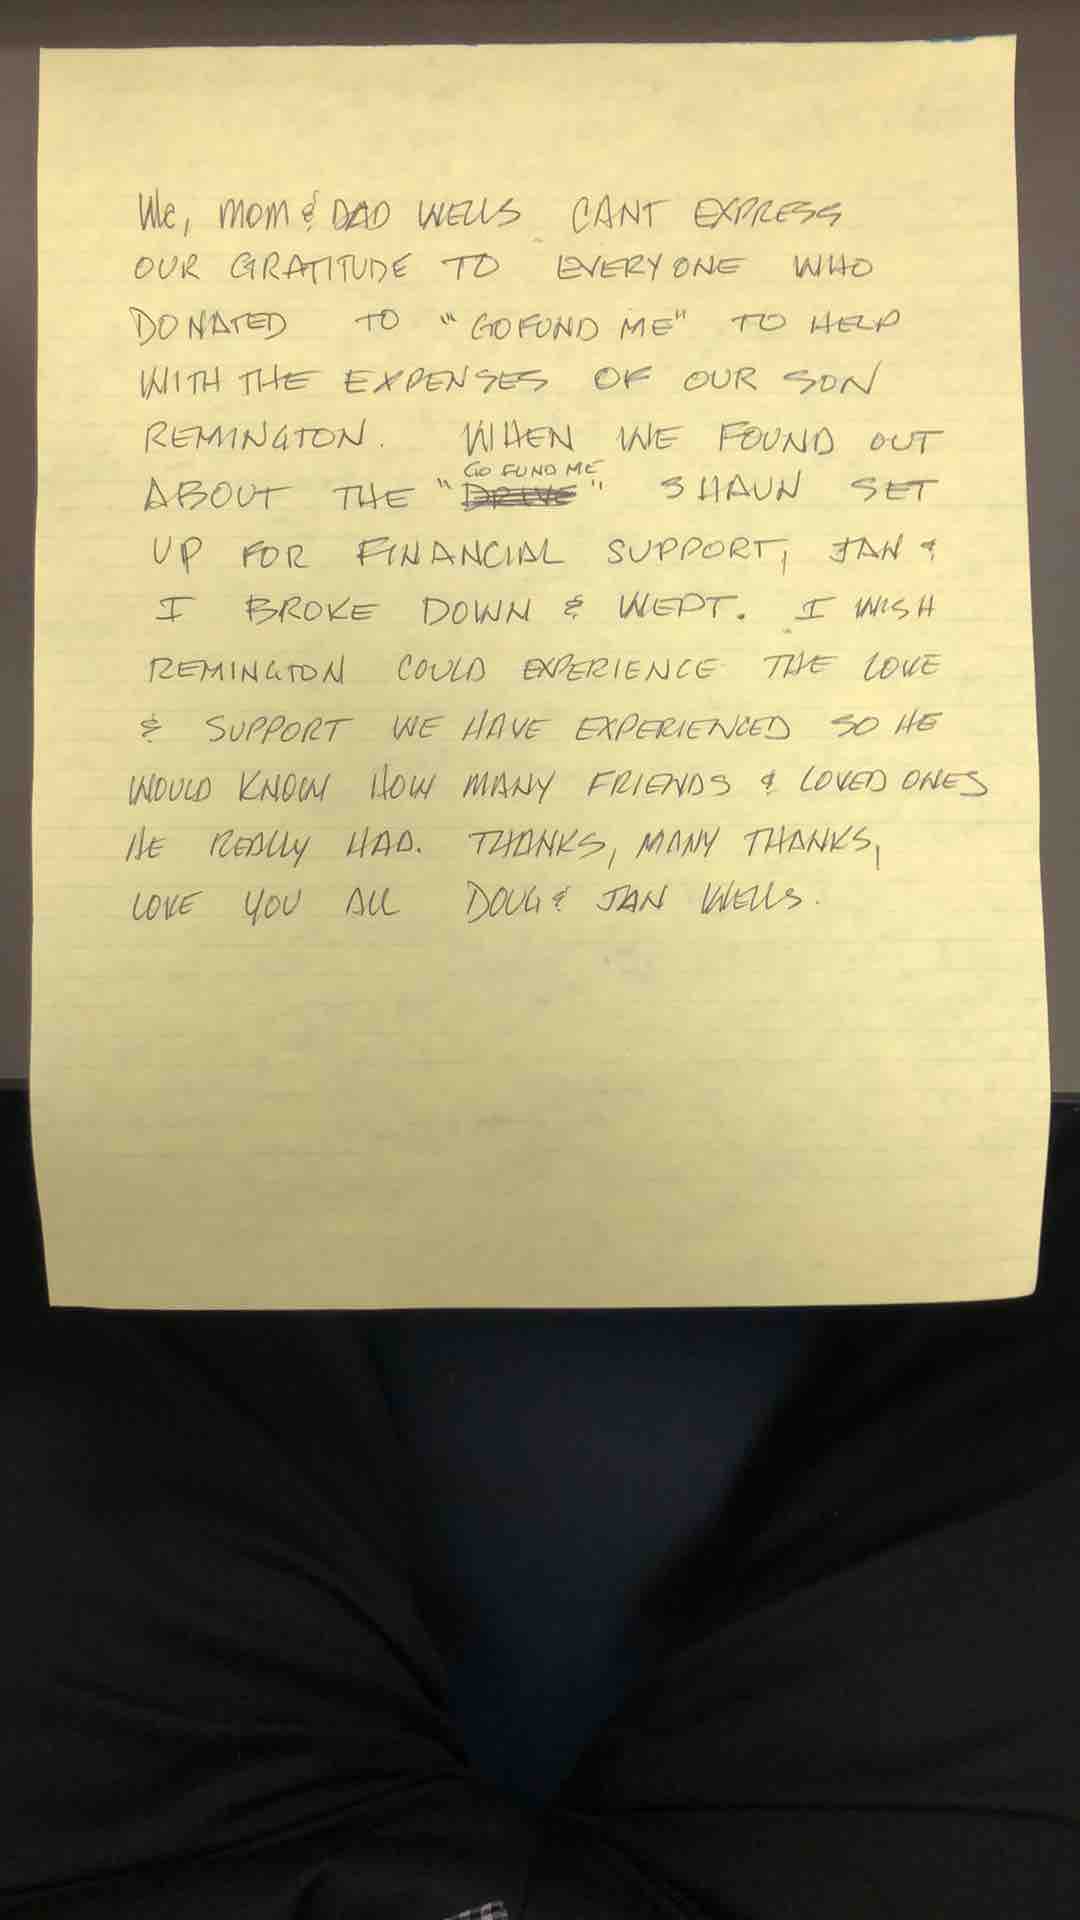 We, MOM & DAD WELLS CANT EXPRESS
OUR GRATITUDE TO EVERYONE WHO
DONATED TO "GOFUND ME" TO HELP
WITH THE EXPENSES OF OUR SON
REMINGTON. WHEN WE FOUND OUT
GO FUND ME
ABOUT THE "DRIVE" SHAUN SET
UP FOR FINANCIAL SUPPORT, JAN &
I BROKE DOWN & WEPT. I WISH
REMINGTON COULD EXPERIENCE THE LOVE
& SUPPORT WE HAVE EXPERIENCED SO HE
WOULD KNOW HOW MANY FRIENDS & LOVED ONES
HE REALLY HAD. THANKS, MANY THANKS,
LOVE YOU ALL DOUG & JAN WELLS.